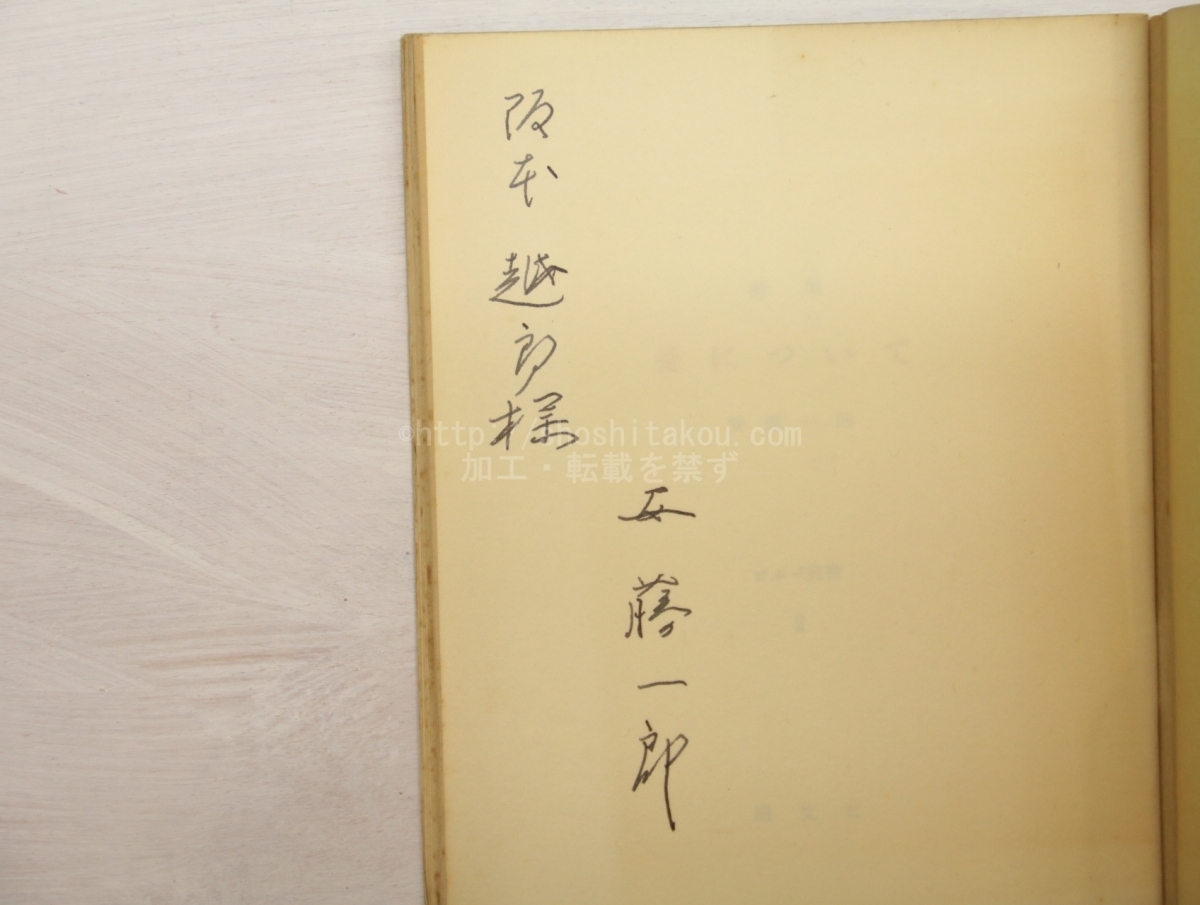 阪本越郎様
安藤一郎
©http://hoshitakou.com
加工・転載を禁ず